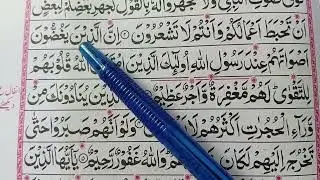 صوت النبي ولا تجهروا له بالقول كجهر بعضكم لبعض
اَنْ تَحْبَطَ اَعْمَالُكُمْ وَاَنْتُمْ لَا تَشْعُرُوْنَ اِنَّ الَّذِيْنَ يَغُضُّوْنَ
اَصْوَاتَهُمْ عِنْدَ رَسُوْلِ اللّٰهِ اُولٰٓئِكَ الَّذِيْنَ قُلُوْبَهُمْ
لِلتَّقْوٰى لَهُمْ مَّغْفِرَةٌ وَّاَجْرٌ عَظِيْمٌ
وَّرَآءِ الْحُجُرٰتِ اَكْثَرُهُمْ لَا وَلَوْ اَنَّهُمْ صَبَرُوْا حَتّٰى
تَخْرُجَ اِلَيْهِمْ لَكَانَ وَاللّٰهُ غَفُوْرٌ رَّحِيْمٌ يٰٓاَيُّهَا الَّذِيْنَ